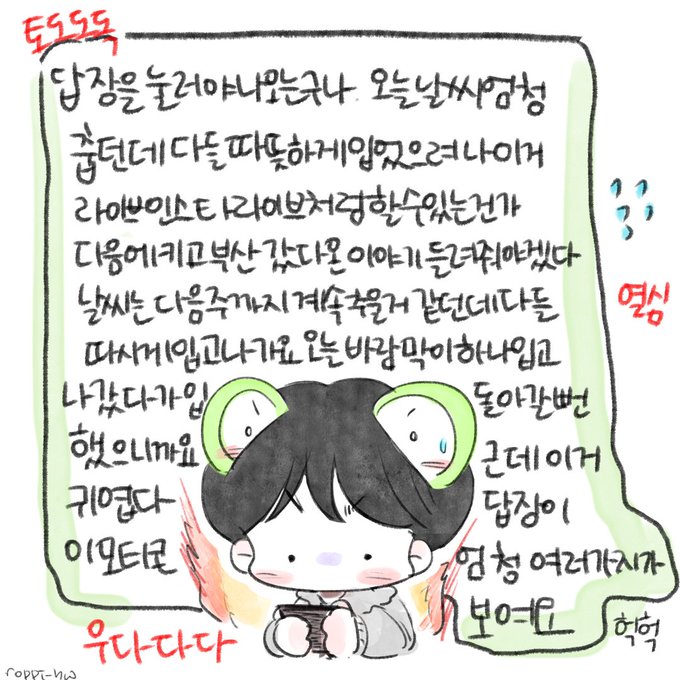 토도도도독
답장을 눌러야 나오는구나 오늘 날씨 엄청
춥던데 다들 따뜻하게 입었으려나 이거
라이브 인스타 라이브처럼 할 수 있는건가
다음에 키고 부산 갔다온 이야기 들려줘야겠다
날씨는 다음주까지 계속 추울거 같던데 다들
따시게 입고 나가요 오늘 바람막이 하나 입고
나갔다가 입 돌아갈 뻔
했으니까요 근데 이거
귀엽다 답장이
이모티콘 엄청 여러가지가
보여요
열심
헉헉
우다다다
roppi-nw